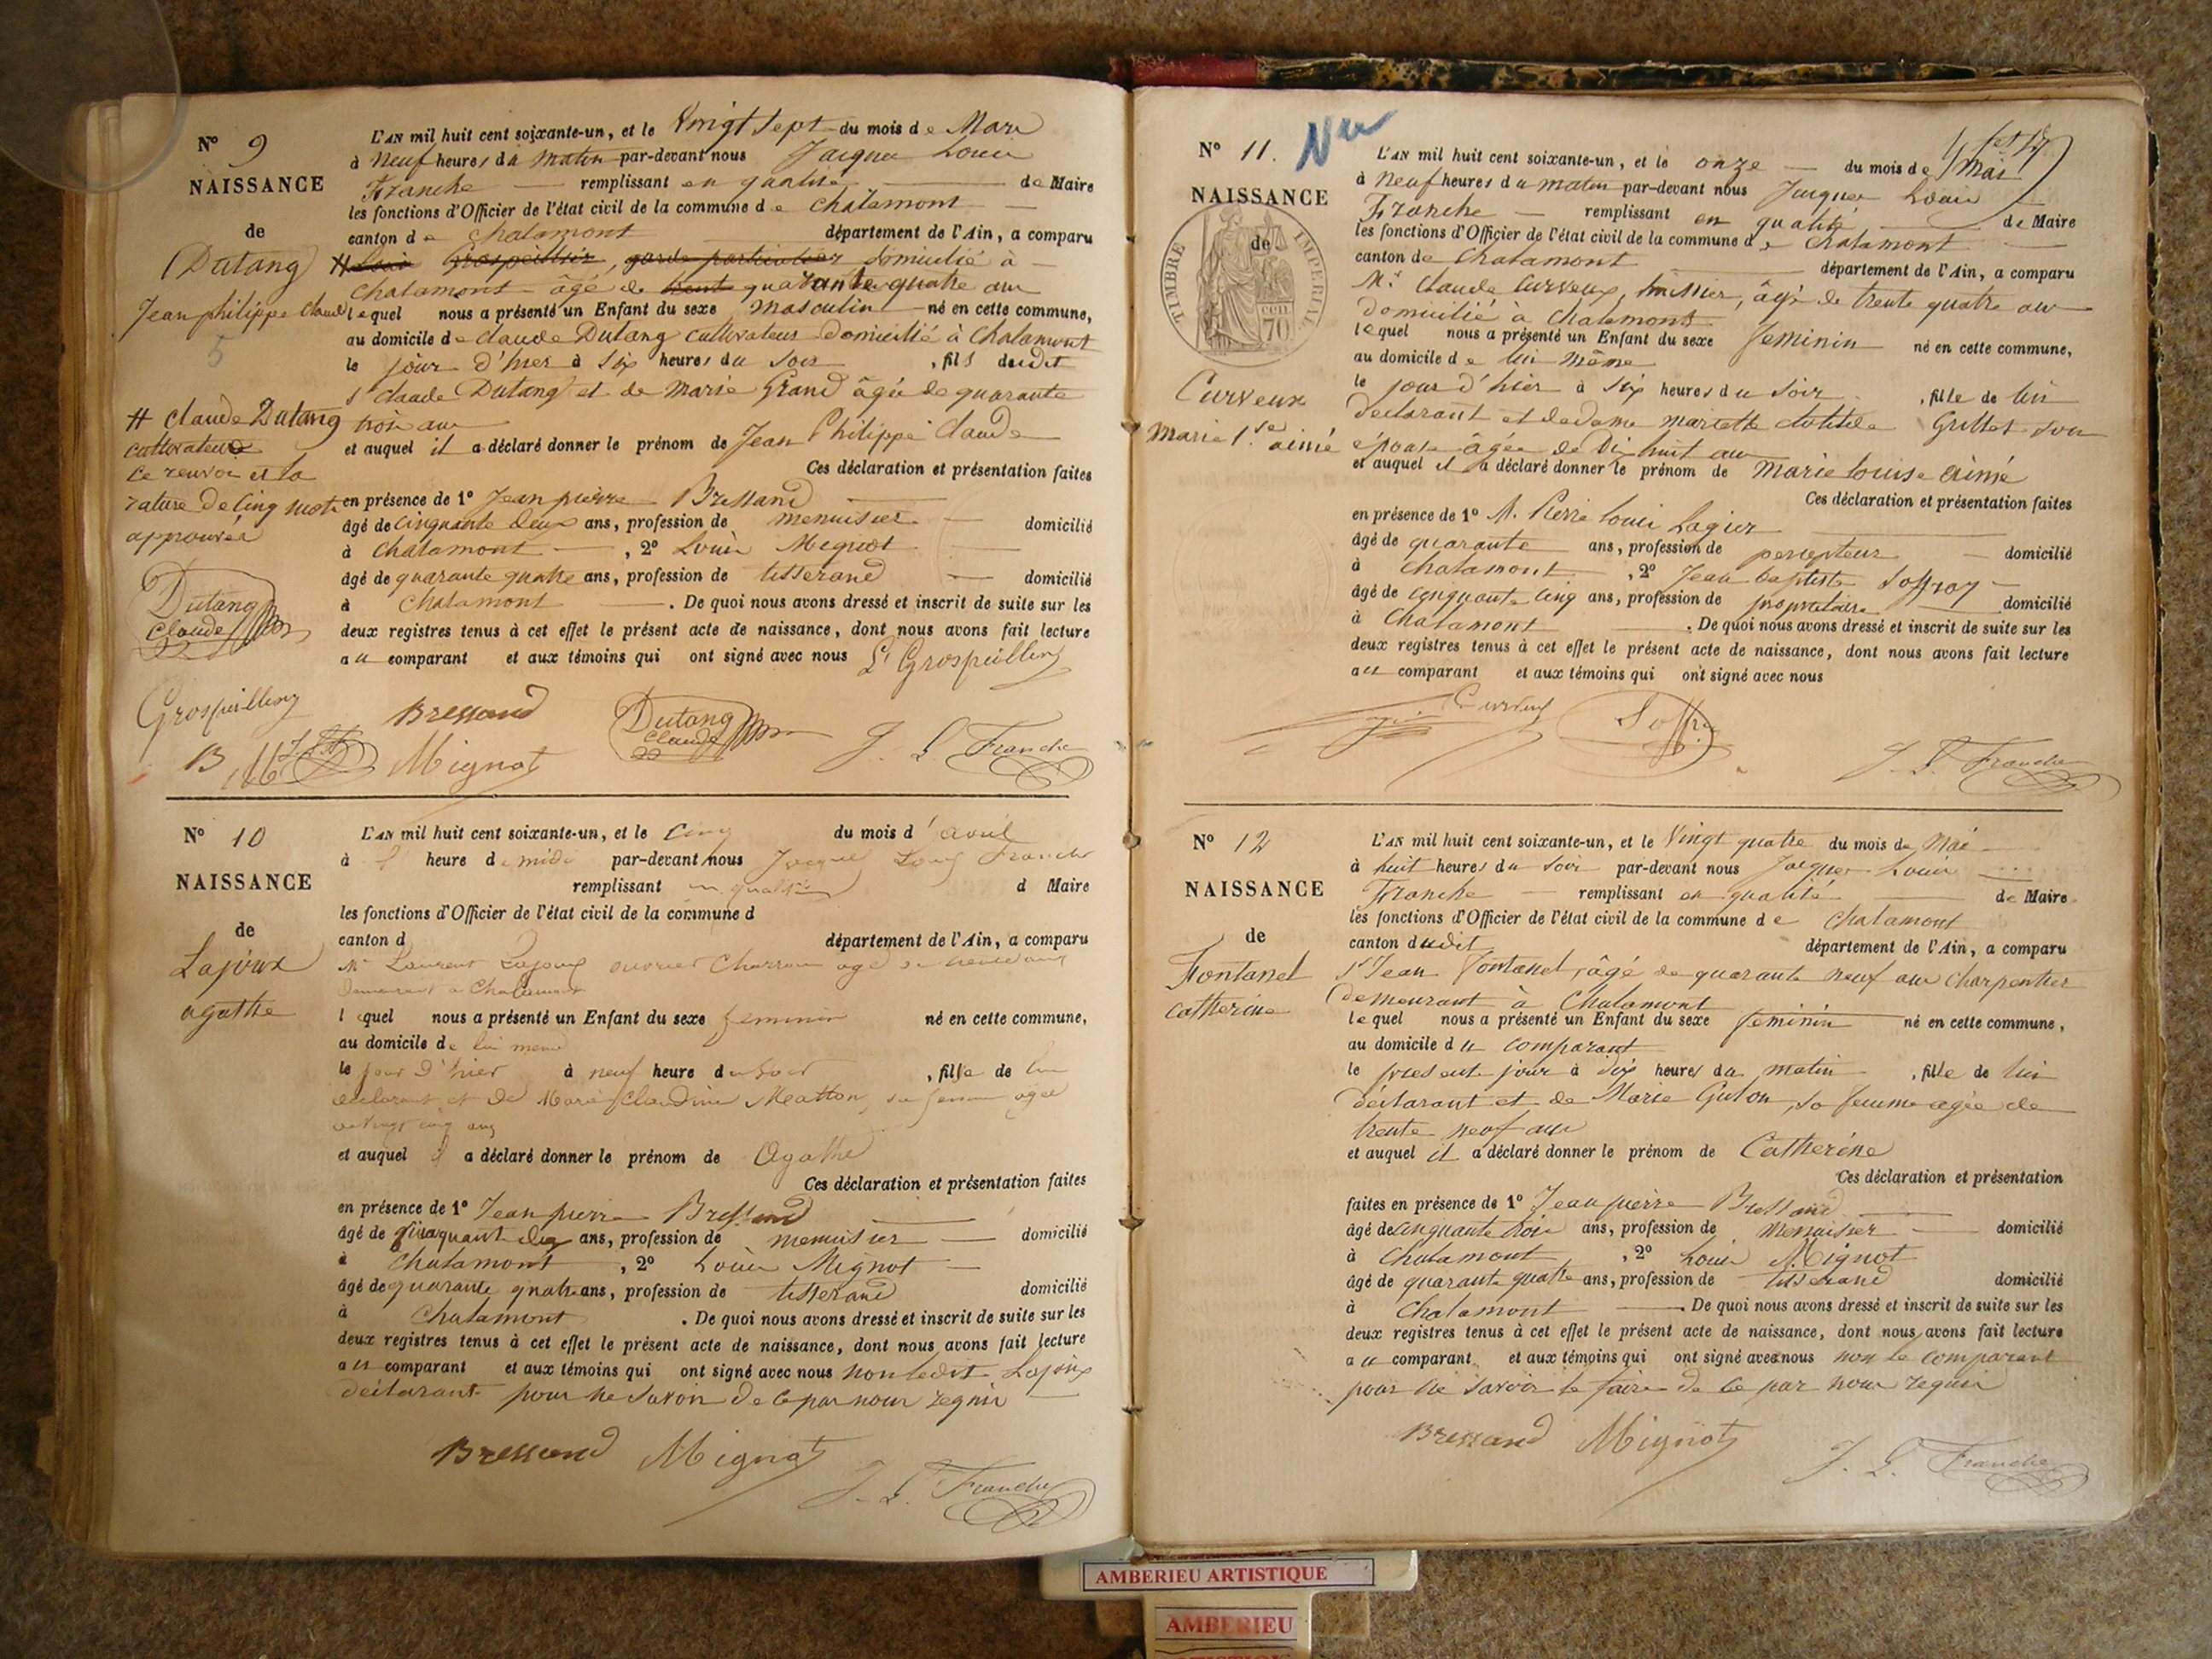 N° 9
NAISSANCE
de
Dutang
Jean philippe Claude
5
# Claude Dutang
cultivateur
Le renvoi et la
rature de cinq mots
approuvés
Dutang
Claude
L'AN mil huit cent soixante-un, et le Vingt sept du mois de Mars
à neuf heures du matin par-devant nous Jacques Louis
Franche remplissant en qualité de Maire
les fonctions d'Officier de l'état civil de la commune de Chalamont
canton de Chalamont département de l'Ain, a comparu
# Louis Grospeillier, garde particulier domicilié à
Chalamont âgé de trente quarante quatre ans
lequel nous a présenté un Enfant du sexe masculin né en cette commune,
au domicile de Claude Dutang cultivateur domicilié à Chalamont
le jour d'hier à six heures du soir, fils dudit
s. Claude Dutang et de Marie Grand âgée de quarante
trois ans
et auquel il a déclaré donner le prénom de Jean Philippe Claude
Ces déclaration et présentation faites
en présence de 1° Jean pierre Bressand
âgé de cinquante deux ans, profession de menuisier domicilié
à Chalamont, 2° Louis Mignot
âgé de quarante quatre ans, profession de tisserand domicilié
à Chalamont. De quoi nous avons dressé et inscrit de suite sur les
deux registres tenus à cet effet le présent acte de naissance, dont nous avons fait lecture
au comparant et aux témoins qui ont signé avec nous L. Grospeillier
Grospeillier Bressand Dutang Claude J. L. Franche
B Mignot
N° 10
NAISSANCE
de
Lajoux
agathe
L'AN mil huit cent soixante-un, et le cinq du mois d'avril
à l' heure de midi par-devant nous Jacques Louis Franche
remplissant en qualité d Maire
les fonctions d'Officier de l'état civil de la commune d
canton d département de l'Ain, a comparu
Mr Laurent Lajoux ouvrier Charron agé de trente ans
demeurant à Chalamont
l quel nous a présenté un Enfant du sexe feminin né en cette commune,
au domicile de lui meme
le jour d'hier à neuf heure du soir, fille de lui
déclarant et de Marie Claudine Matton, sa femme agée
de vingt cinq ans
et auquel il a déclaré donner le prénom de Agathe
Ces déclaration et présentation faites
en présence de 1° Jean pierre Bressand
âgé de cinquante deux ans, profession de menuisier domicilié
à Chalamont, 2° Louis Mignot
âgé de quarante quatre ans, profession de tisserand domicilié
à Chalamont. De quoi nous avons dressé et inscrit de suite sur les
deux registres tenus à cet effet le présent acte de naissance, dont nous avons fait lecture
au comparant et aux témoins qui ont signé avec nous non ledit Lajoux
déclarant pour ne savoir de ce par nous requis
Bressand Mignot J. L. Franche
N° 11.
NAISSANCE
de
TIMBRE IMPERIAL
CEN
70
Curveux
Marie l.se aimé
L'AN mil huit cent soixante-un, et le onze du mois de Mai
à neuf heures du matin par-devant nous Jacques Louis
Franche remplissant en qualité de Maire
les fonctions d'Officier de l'état civil de la commune de Chalamont
canton de Chalamont département de l'Ain, a comparu
Mr. Claude Curveux, huissier, âgé de trente quatre ans
domicilié à Chalamont
lequel nous a présenté un Enfant du sexe feminin né en cette commune,
au domicile de lui même
le jour d'hier à six heures du soir, fille de lui
déclarant et de dame mariette clotilde Grillet son
épouse âgée de Dix huit ans
et auquel il a déclaré donner le prénom de Marie louise aimé
Ces déclaration et présentation faites
en présence de 1° M. Pierre louis Lagier
âgé de quarante ans, profession de percepteur domicilié
à Chalamont, 2° Jean baptiste Soffray
âgé de cinquante cinq ans, profession de propriétaire domicilié
à Chalamont. De quoi nous avons dressé et inscrit de suite sur les
deux registres tenus à cet effet le présent acte de naissance, dont nous avons fait lecture
au comparant et aux témoins qui ont signé avec nous
Curveux
J. L. Franche
N° 12
NAISSANCE
de
Fontanel
Catherine
L'AN mil huit cent soixante-un, et le Vingt quatre du mois de Mai
à huit heures du soir par-devant nous Jacques Louis
Franche remplissant en qualité de Maire
les fonctions d'Officier de l'état civil de la commune de Chalamont
canton dudit département de l'Ain, a comparu
sr Jean Fontanel, âgé de quarante neuf ans charpentier
demeurant à Chalamont
lequel nous a présenté un Enfant du sexe feminin né en cette commune,
au domicile du comparant
le présent jour à dix heures du matin, fille de lui
déclarant et de Marie Guton, sa femme agée de
trente neuf ans
et auquel il a déclaré donner le prénom de Catherine
Ces déclaration et présentation
faites en présence de 1° Jean pierre Bressand
âgé de cinquante trois ans, profession de Menuisier domicilié
à Chalamont, 2° Louis Mignot
âgé de quarante quatre ans, profession de tisserand domicilié
à Chalamont. De quoi nous avons dressé et inscrit de suite sur les
deux registres tenus à cet effet le présent acte de naissance, dont nous avons fait lecture
au comparant et aux témoins qui ont signé avec nous non le comparant
pour ne savoir le faire de ce par nous requis
Bressand Mignot J. L. Franche
AMBERIEU ARTISTIQUE
AMBERIEU